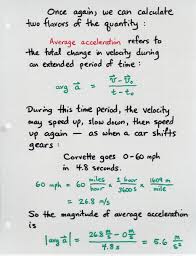 Once again, we can calculate
two flavors of the quantity :
Average acceleration refers to
the total change in velocity during
an extended period of time :
avg a⃗ = (v⃗ - v⃗₀) / (t - t₀)
During this time period, the velocity
may speed up, slow down, then speed
up again — as when a car shifts
gears :
Corvette goes 0-60 mph
in 4.8 seconds.
60 mph = 60 miles/hour × 1 hour/3600 s × 1609 m/mile
= 26.8 m/s
So the magnitude of average acceleration
is
|avg a⃗| = (26.8 m/s - 0 m/s) / 4.8 s = 5.6 m/s²